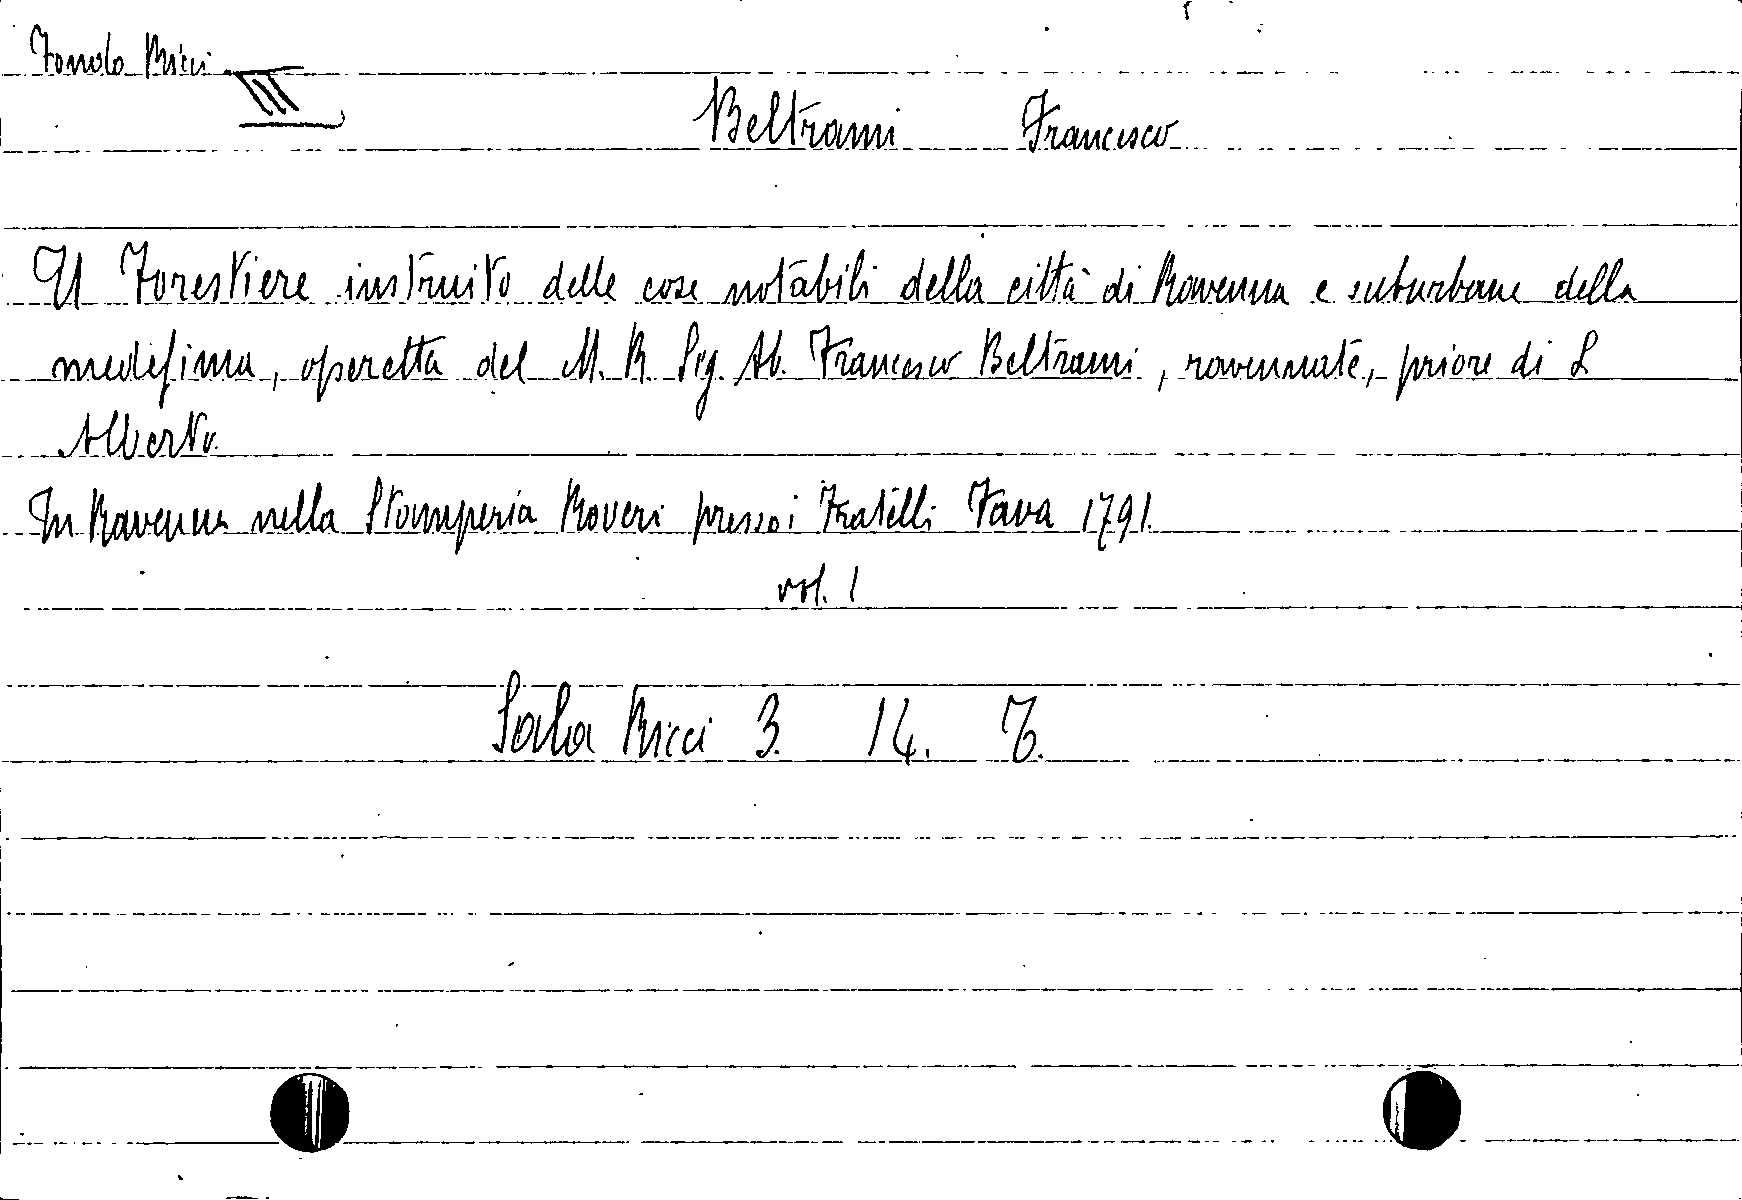 Fondo Ricci
III
Beltrami Francesco
Il Forestiere instruito delle cose notabili della città di Ravenna e suburbane della
medesima, operetta del M. R. Sig. Ab. Francesco Beltrami, ravennate, priore di S
Alberto.
In Ravenna nella Stamperia Roveri presso i Fratelli Fava 1791.
vol. 1
Sala Ricci 3. 14. Z.